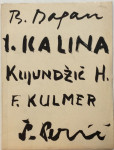 B. Dogan
I. KALINA
KUJUNDŽIĆ H.
F. KULMER
Š. Perić